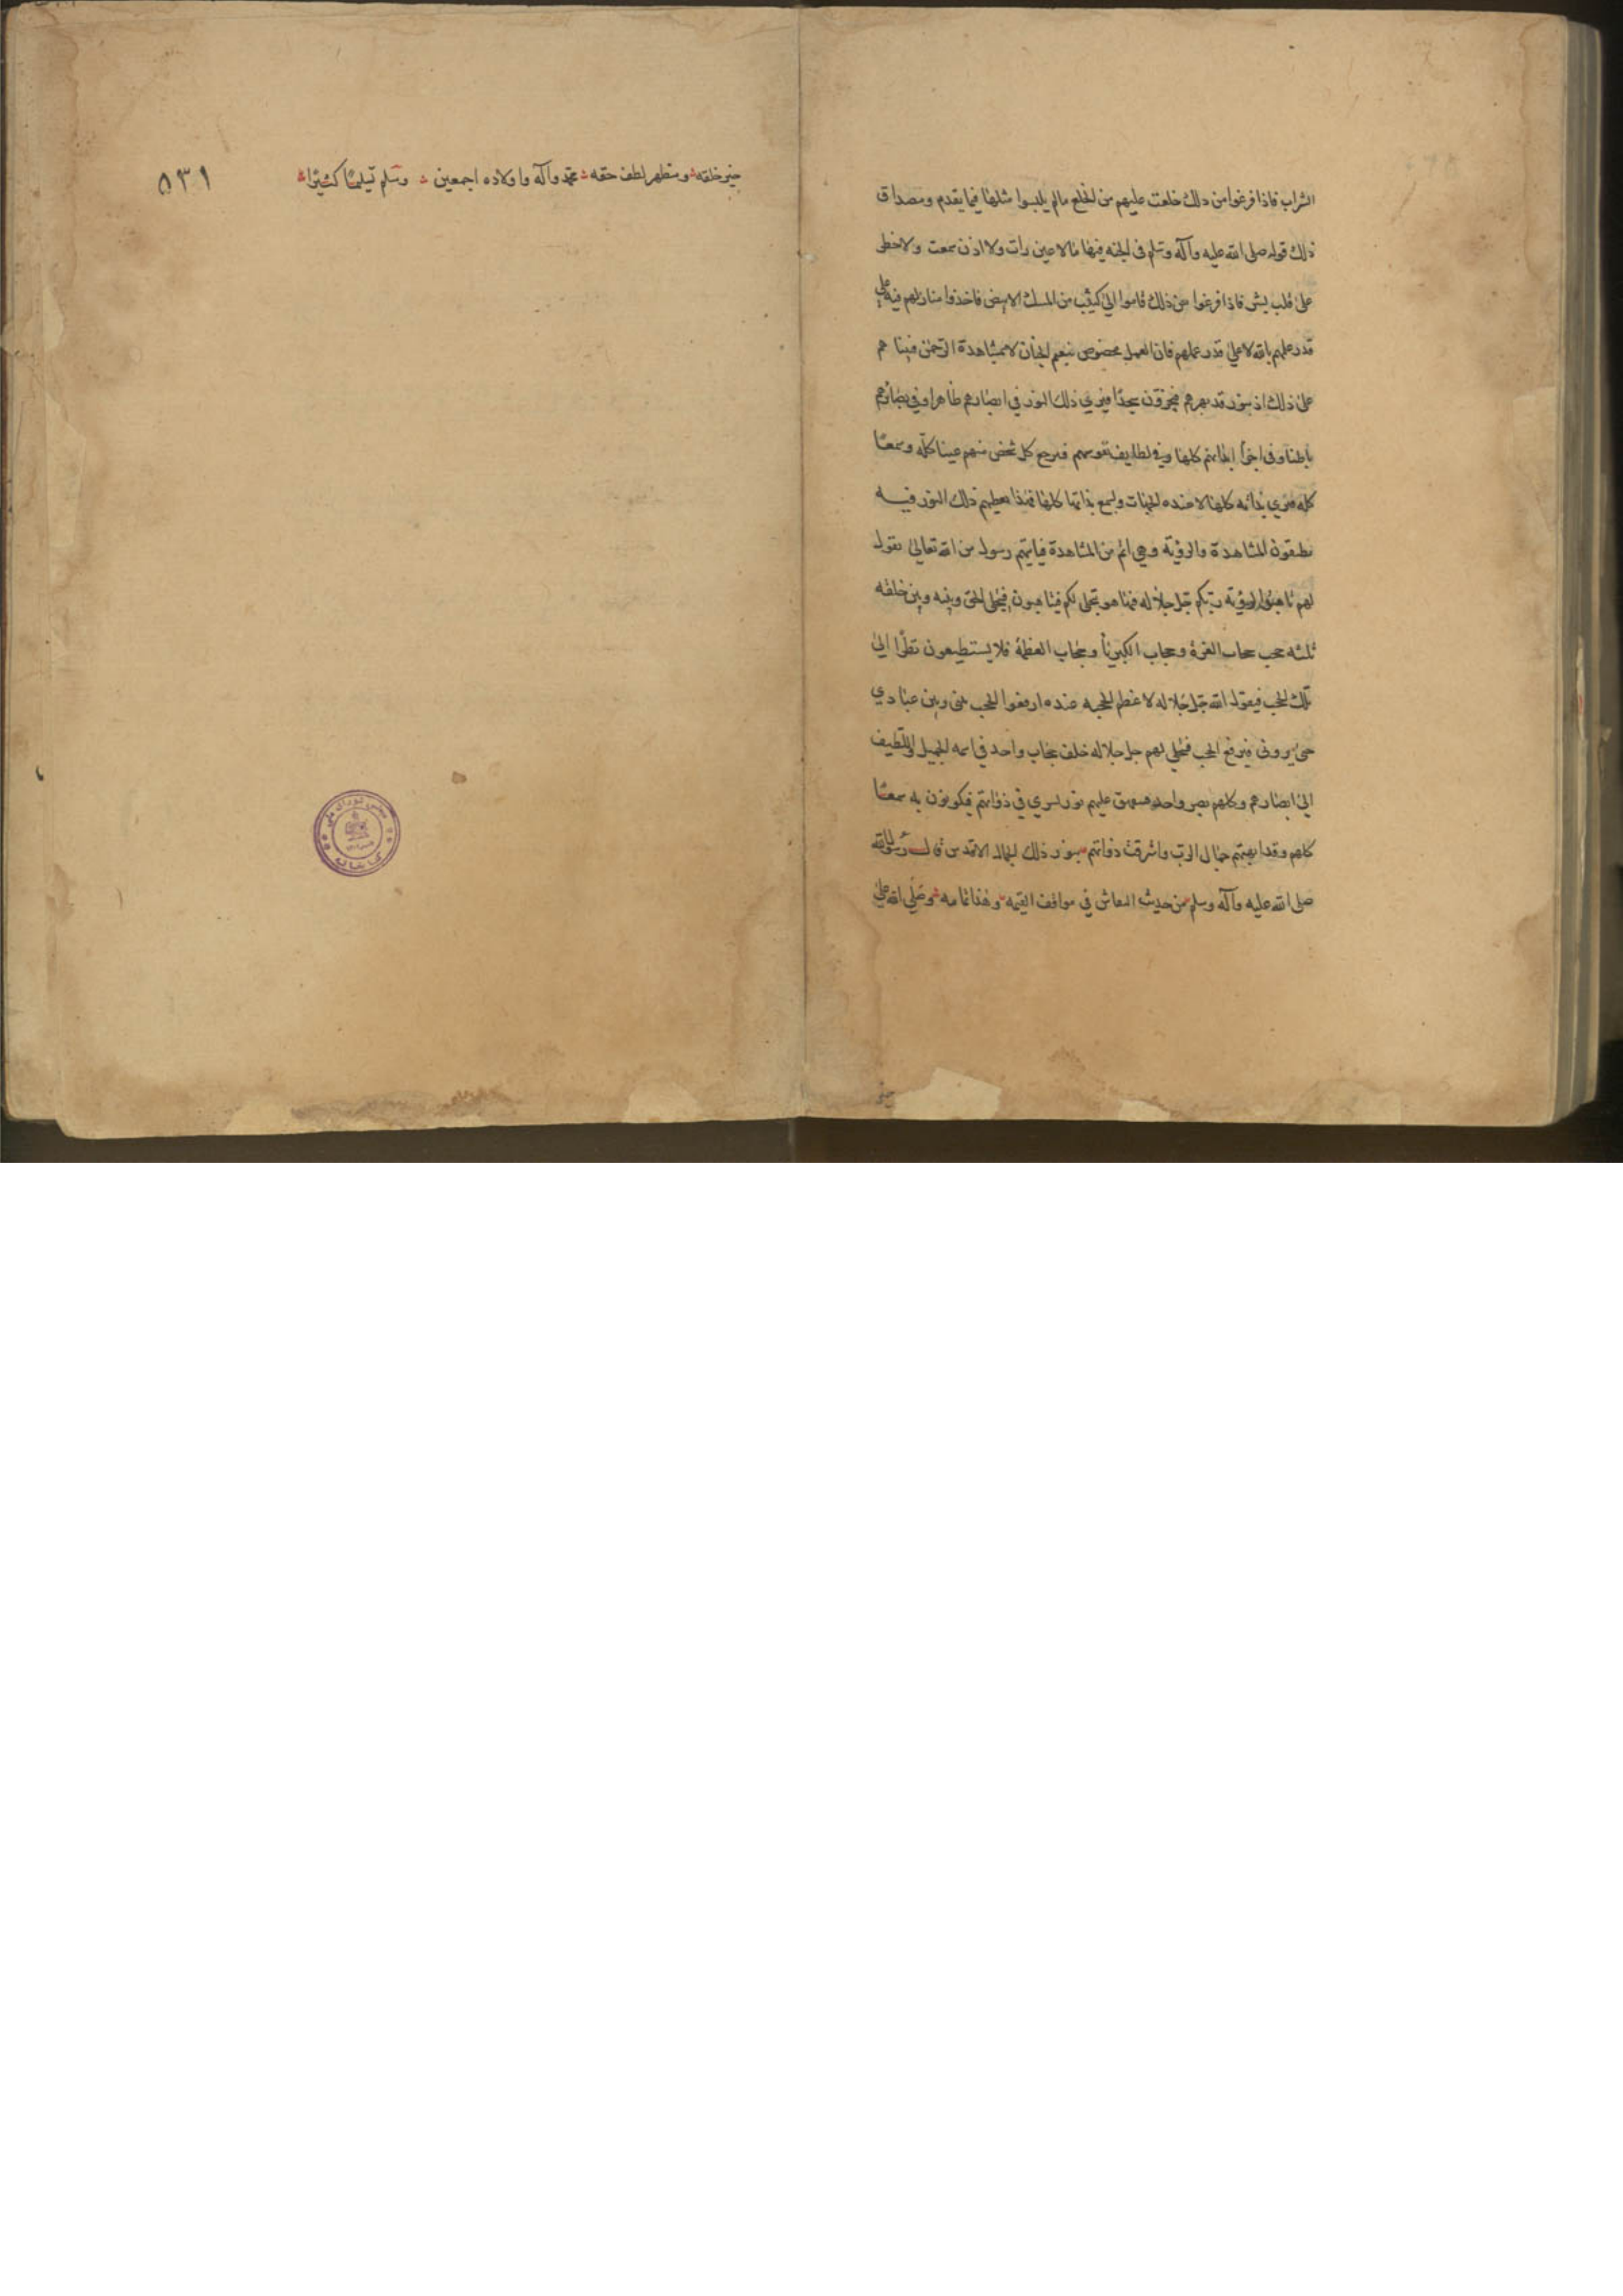 الشراب فاذا فرغوا من ذلك خلعت عليهم من الخلع مالم يلبسوا مثلها فيما يقدم ومصداق
ذلك قوله صلى الله عليه وآله وسلم فى الجنه فيها مالا عين رات ولا اذن سمعت ولا خطر
على قلب بشر فاذا فرغوا من ذلك قاموا الى كثيب من المسك الابيض فاخذوا منازلهم فيه على
قدر علمهم بالله لا على قدر عملهم فان العمل مخصوص بنعيم الجنان لا بمشاهدة الرحمن فبينا هم
على ذلك اذ بنور قد بهرهم فيخرون سجدا فيسري ذلك النور في ابصارهم ظاهرا وفي بصائرهم
باطنا وفى اجزأ ابدانهم كلها وفي لطايف نفوسهم فيرجع كل شخص منهم عينا كله وسمعا
كله فيري بذاته كلها لا عنده الجهات ويسمع بذاتها كلها فهذا يعطيهم ذلك النور فيه
يطيقون المشاهدة والرؤية وهي اتم من المشاهدة فياتيهم رسول من الله تعالى يقول
لهم تاهبوا لرؤية ربكم جل جلاله فها هو يتجلى لكم فيتاهبون فيتجلى الحق وبينه وبين خلقه
ثلثه حجب حجاب العزة وحجاب الكبريأ وحجاب العظمة فلا يستطيعون نظرا الى
تلك الحجب فيقول الله جل جلاله لاعظم الحجبه عنده ارفعوا الحجب بينى وبين عبادي
حتى يرونى فيرفع الحجب فيتجلى لهم جل جلاله خلف حجاب واحد في اسمه الجميل اللطيف
الى ابصارهم وكلهم بصر واحد فينفهق عليهم نور يسري في ذواتهم فيكونون به سمعا
كلهم وقد ابهتهم جمال الرب واشرقت ذواتهم بنور ذلك الجمال الاقدس قال رسول الله
صلى الله عليه وآله وسلم من حديث النقاش في مواقف القيمه وهذا تمامه وصلى الله على
خير
خير خلقه ومظهر لطف حقه محمد وآله واولاده اجمعين وسلم تسليما كثيرا
٥٣١